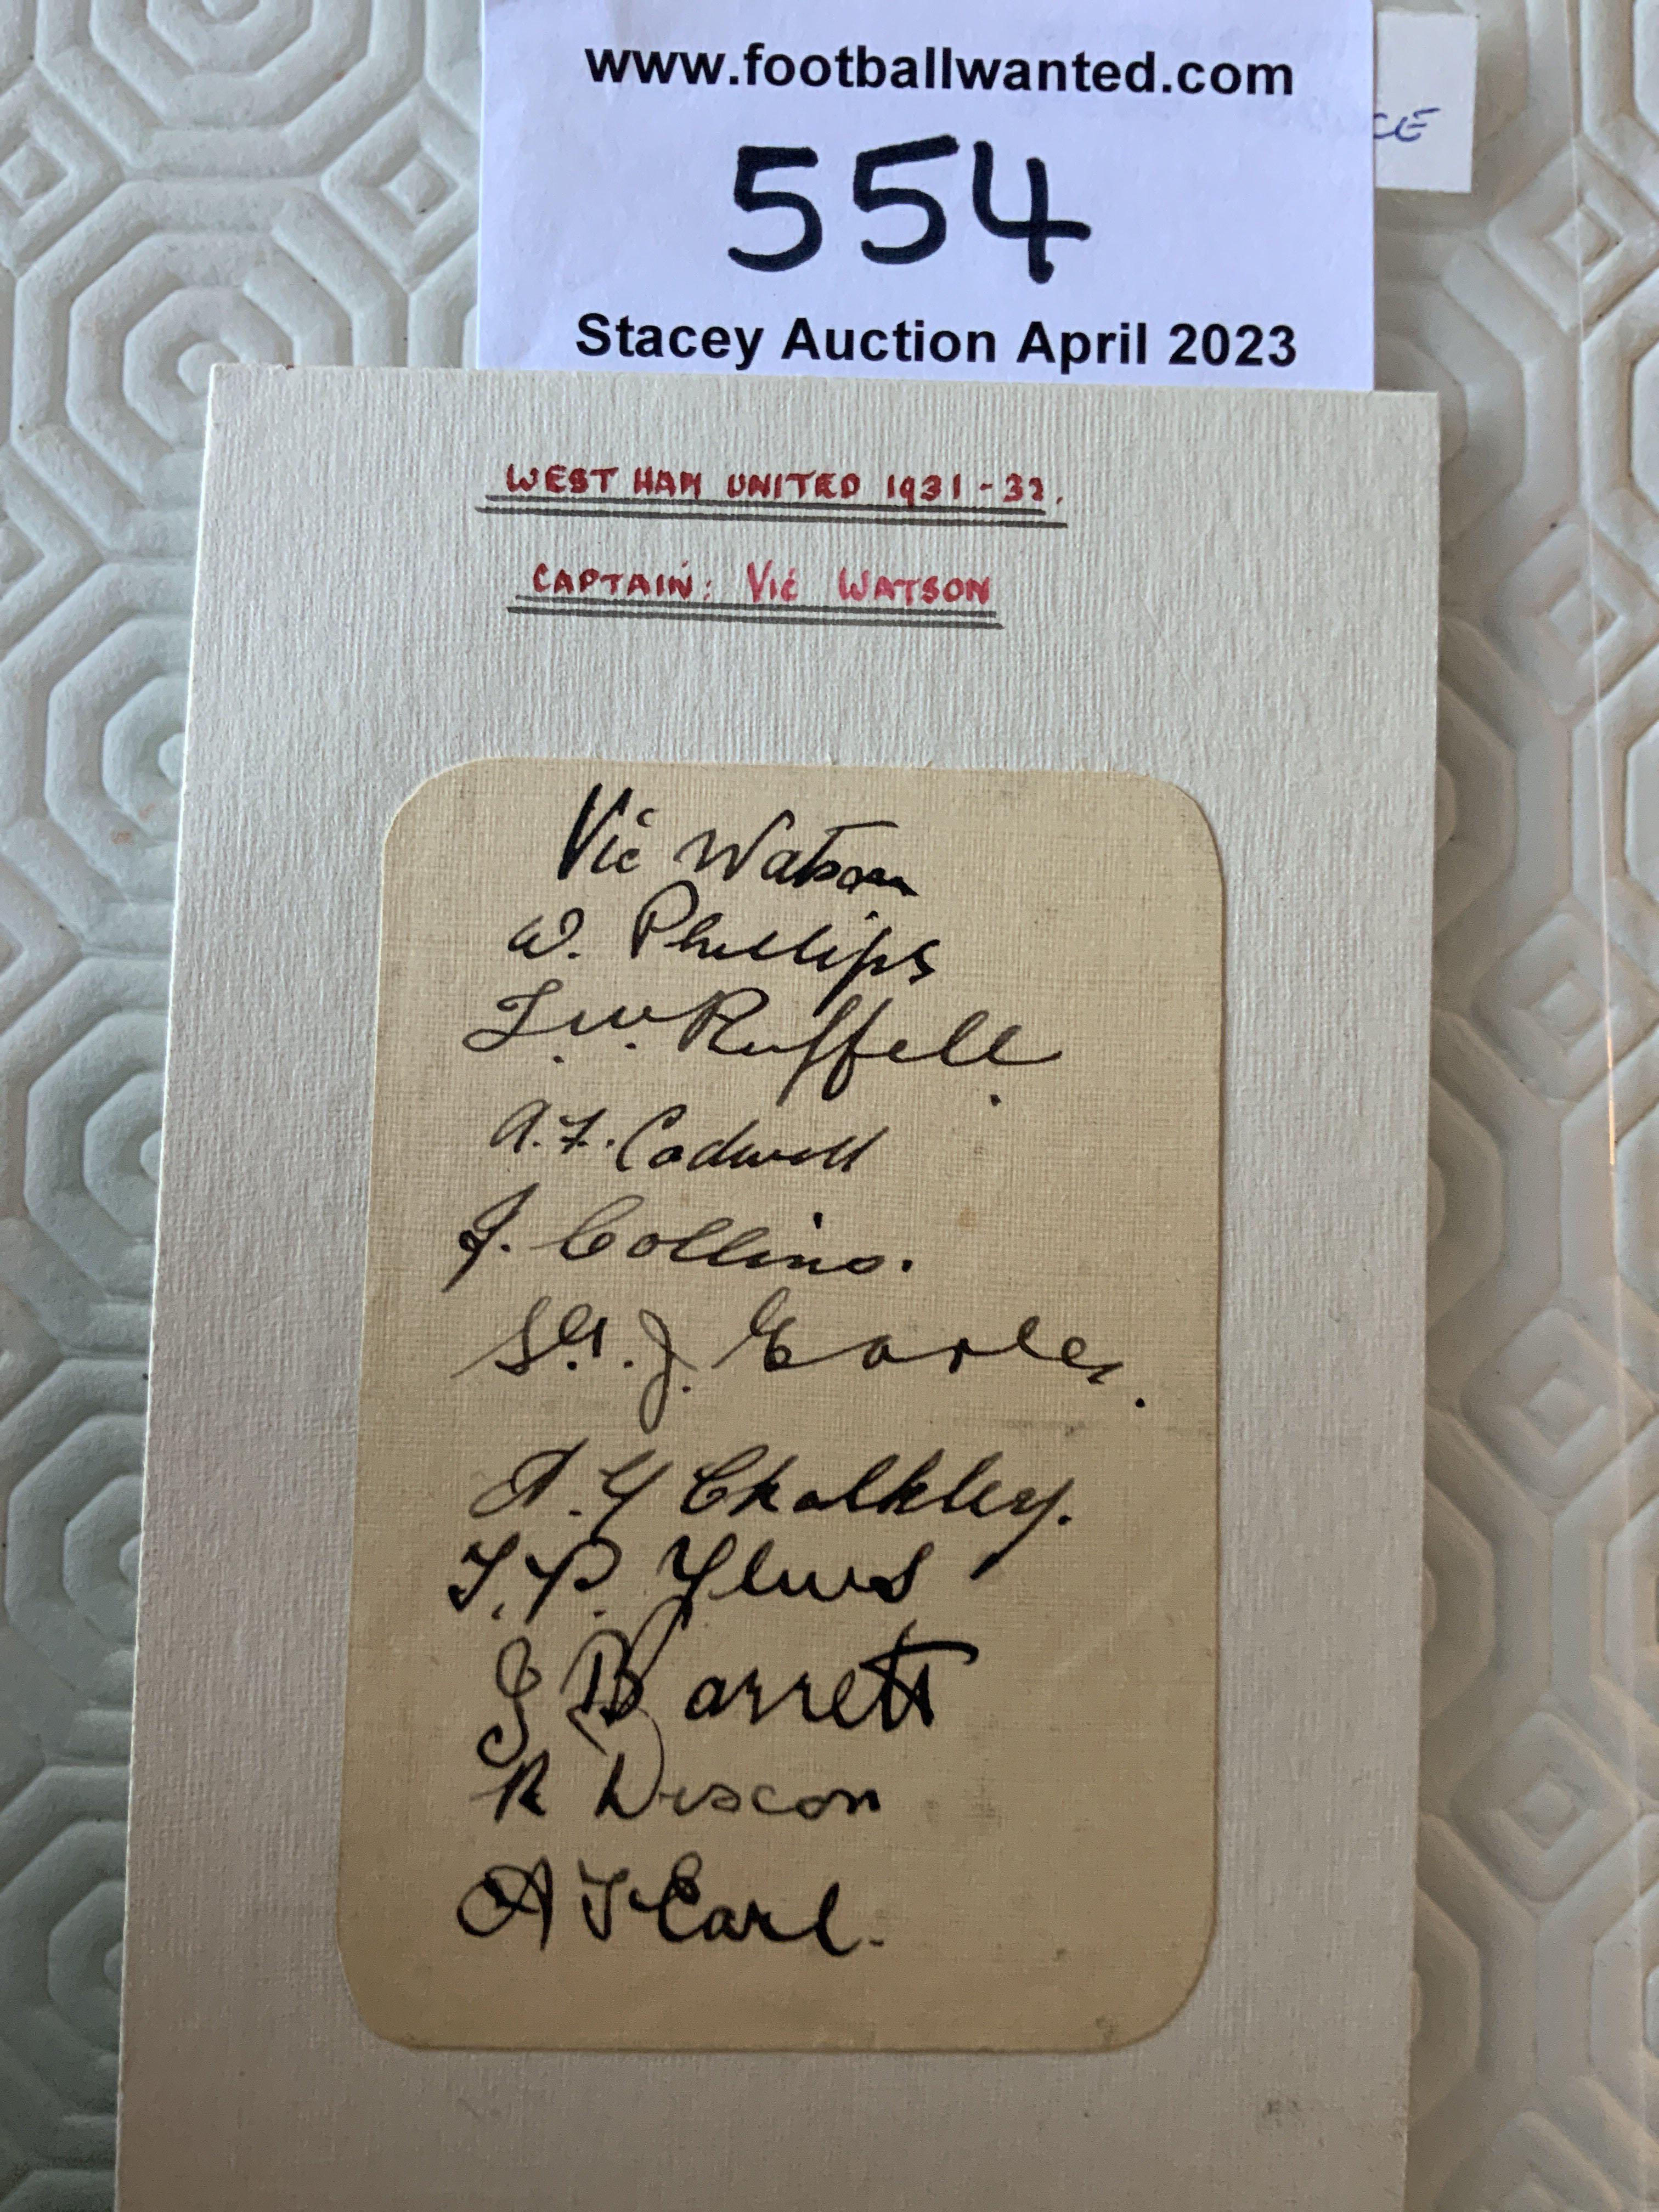 www.footballwanted.com
CE
554
Stacey Auction April 2023
WEST HAM UNITED 1931-32.
CAPTAIN: Vic WATSON
Vic Watson
W. Phillips
J.W. Ruffell.
A.F. Cadwell
J. Collins.
St. G. J. Earle.
A. G Chalkley.
T. P. Yews
J Barrett
R Dixon
A T Earl.